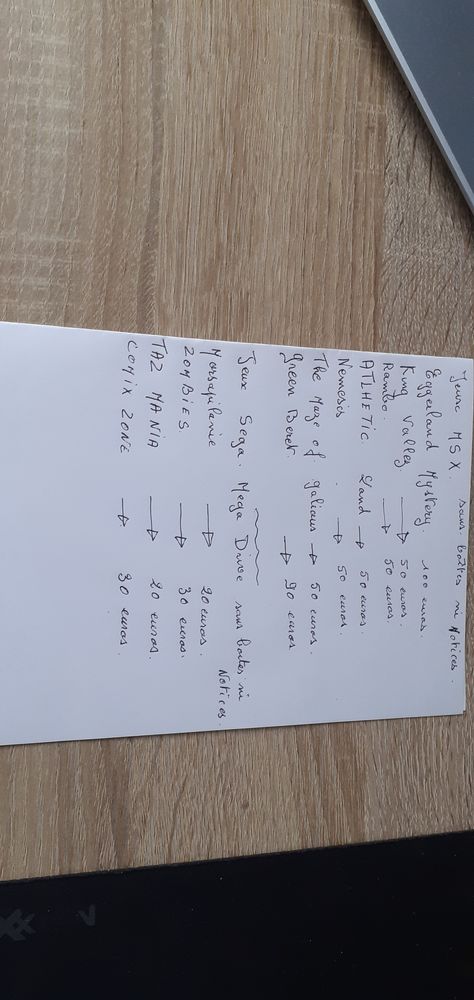 Jeux MSX. sans boîtes ni Notices.
Eggerland Mystery. 100 euros.
King Valley → 50 euros.
Rambo. → 50 euros.
ATHETIC Land → 50 euros.
Nemesis → 50 euros.
The Maze of galious → 50 euros.
green Beret → 90 euros
Jeux Sega. Mega Drive sans boites ni
Notices.
Marsupilamie → 20 euros.
ZOMBIES → 30 euros.
TAZ MANIA → 20 euros.
COMIX ZONE → 30 euros.